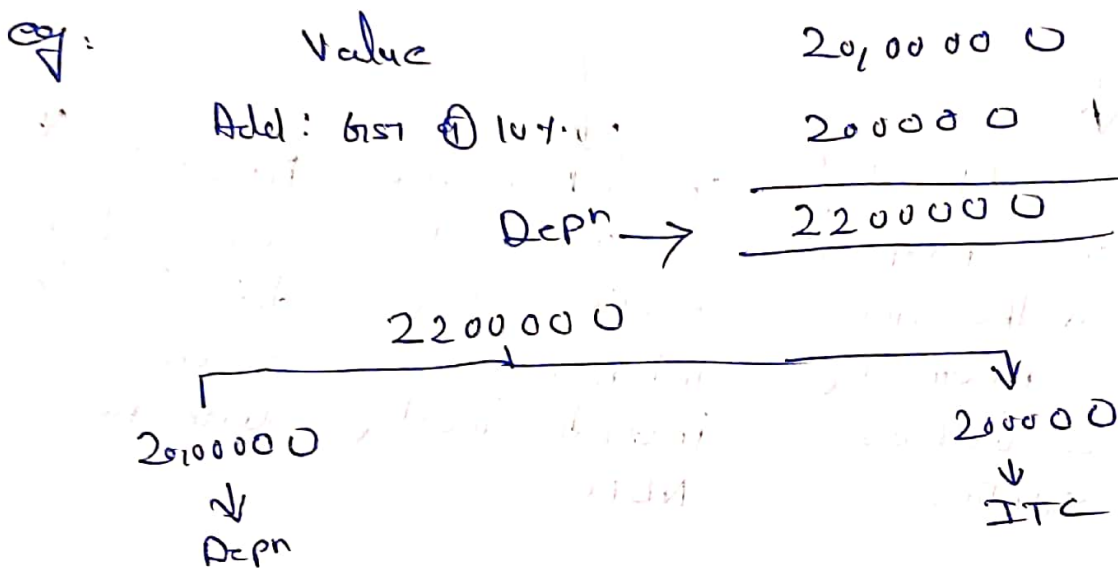 eg: Value 20,00000
Add: GST @ 10%. 200000
Depn → 2200000
2200000
20,00000 200000
Depn ITC